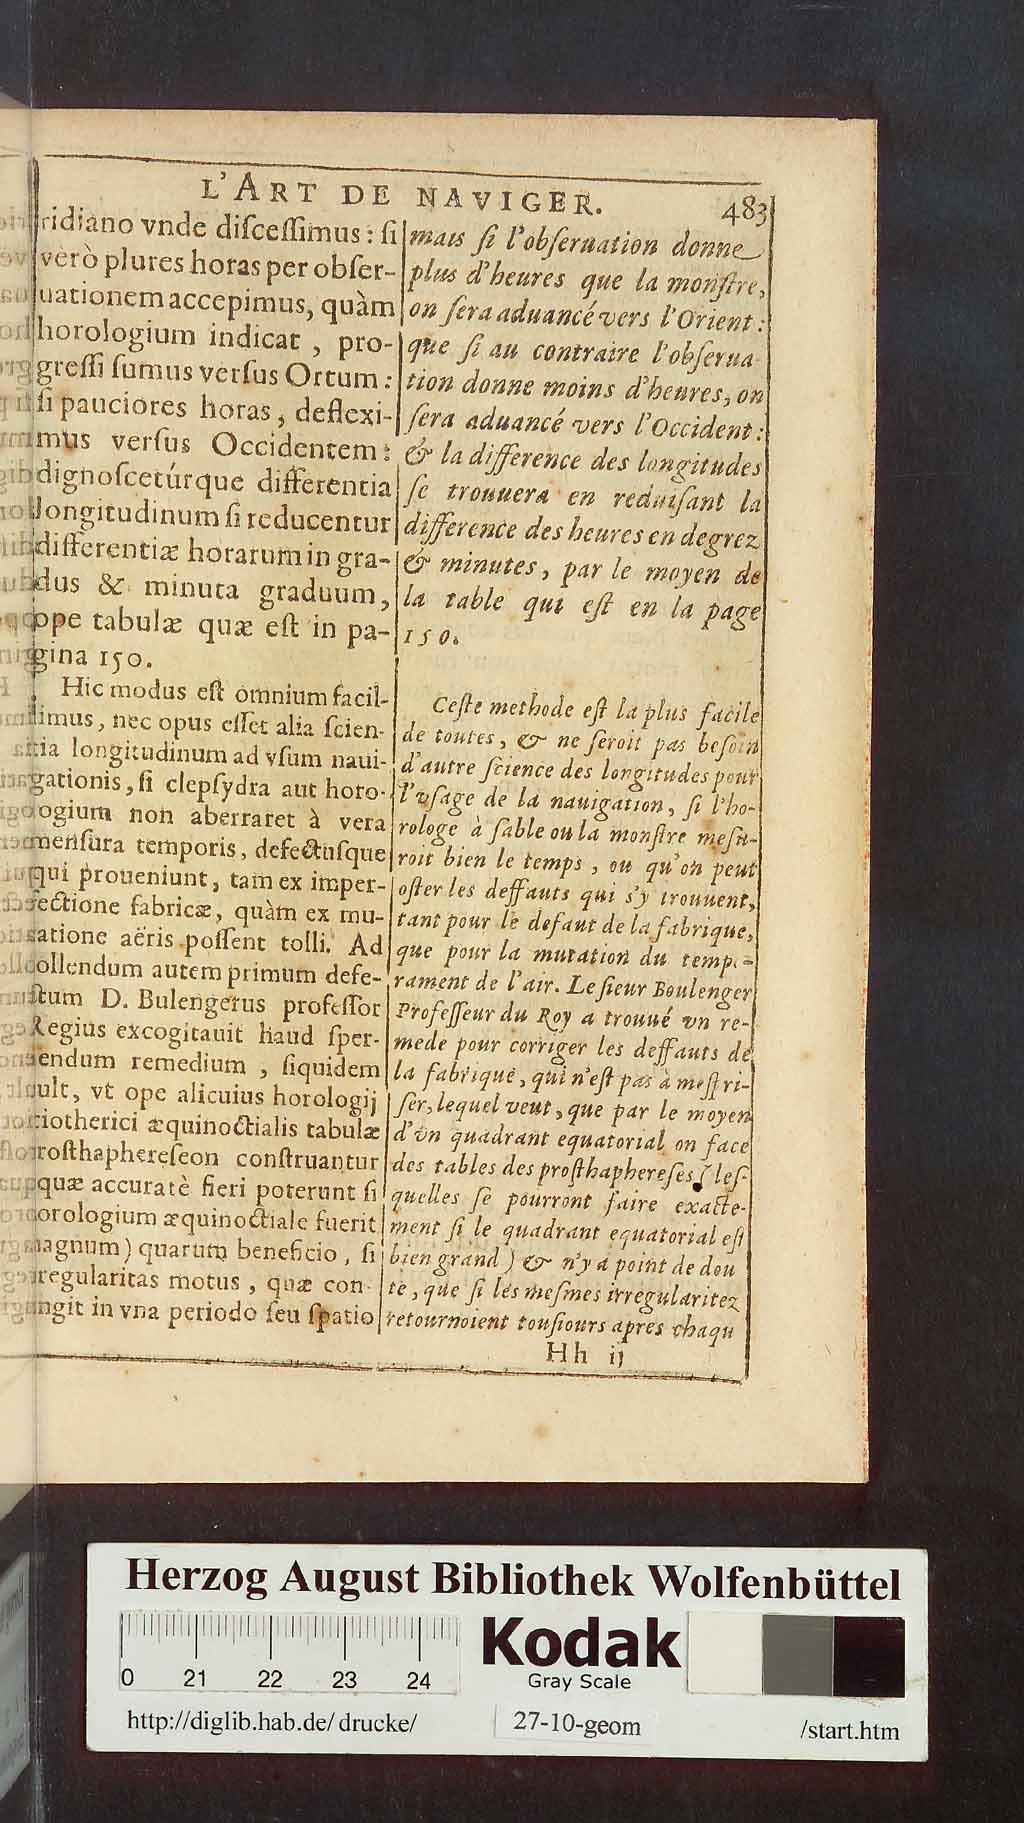 L'ART DE NAVIGER. 483
ridiano vnde discessimus : si
verò plures horas per obser-
uationem accepimus, quàm
horologium indicat , pro-
gressi sumus versus Ortum :
si pauciores horas, deflexi-
mus versus Occidentem :
dignoscetúrque differentia
longitudinum si reducentur
differentiæ horarum in gra-
dus & minuta graduum,
ope tabulæ quæ est in pa-
gina 150.
Hic modus est omnium facil-
limus, nec opus esset alia scien-
tia longitudinum ad vsum naui-
gationis, si clepsydra aut horo-
ogium non aberraret à vera
mensura temporis, defectúsque
qui proueniunt, tam ex imper-
fectione fabricæ, quàm ex mu-
tatione aëris possent tolli. Ad
ollendum autem primum defe-
ctum D. Bulengerus professor
Regius excogitauit haud sper-
nendum remedium , siquidem
uult, vt ope alicuius horologij
ciotherici æquinoctialis tabulæ
rosthaphereseon construantur
quæ accuratè fieri poterunt si
orologium æquinoctiale fuerit
magnum) quarum beneficio , si
rregularitas motus , quæ con-
ngit in vna periodo seu spatio
mais si l'obseruation donne
plus d'heures que la monstre,
on sera aduancé vers l'Orient :
que si au contraire l'obserua-
tion donne moins d'heures, on
sera aduancé vers l'Occident :
& la difference des longitudes
se trouuera en reduisant la
difference des heures en degrez
& minutes, par le moyen de
la table qui est en la page
150.
Ceste methode est la plus facile
de toutes, & ne seroit pas besoin
d'autre science des longitudes pour
l'vsage de la nauigation, si l'ho-
rologe à sable ou la monstre mesu-
roit bien le temps , ou qu'on peut
oster les deffauts qui s'y trouuent,
tant pour le defaut de la fabrique,
que pour la mutation du tempe-
rament de l'air. Le sieur Boulenger
Professeur du Roy a trouué vn re-
mede pour corriger les deffauts de
la fabrique, qui n'est pas à mespri-
ser, lequel veut, que par le moyen
d'vn quadrant equatorial on face
des tables des prosthaphereses ( les-
quelles se pourront faire exacte-
ment si le quadrant equatorial est
bien grand ) & n'y a point de dou
te, que si les mesmes irregularitez
retournoient tousiours apres chaqu
Hh ij
Herzog August Bibliothek Wolfenbüttel
0 21 22 23 24
Kodak
Gray Scale
http://diglib.hab.de/drucke/ 27-10-geom /start.htm